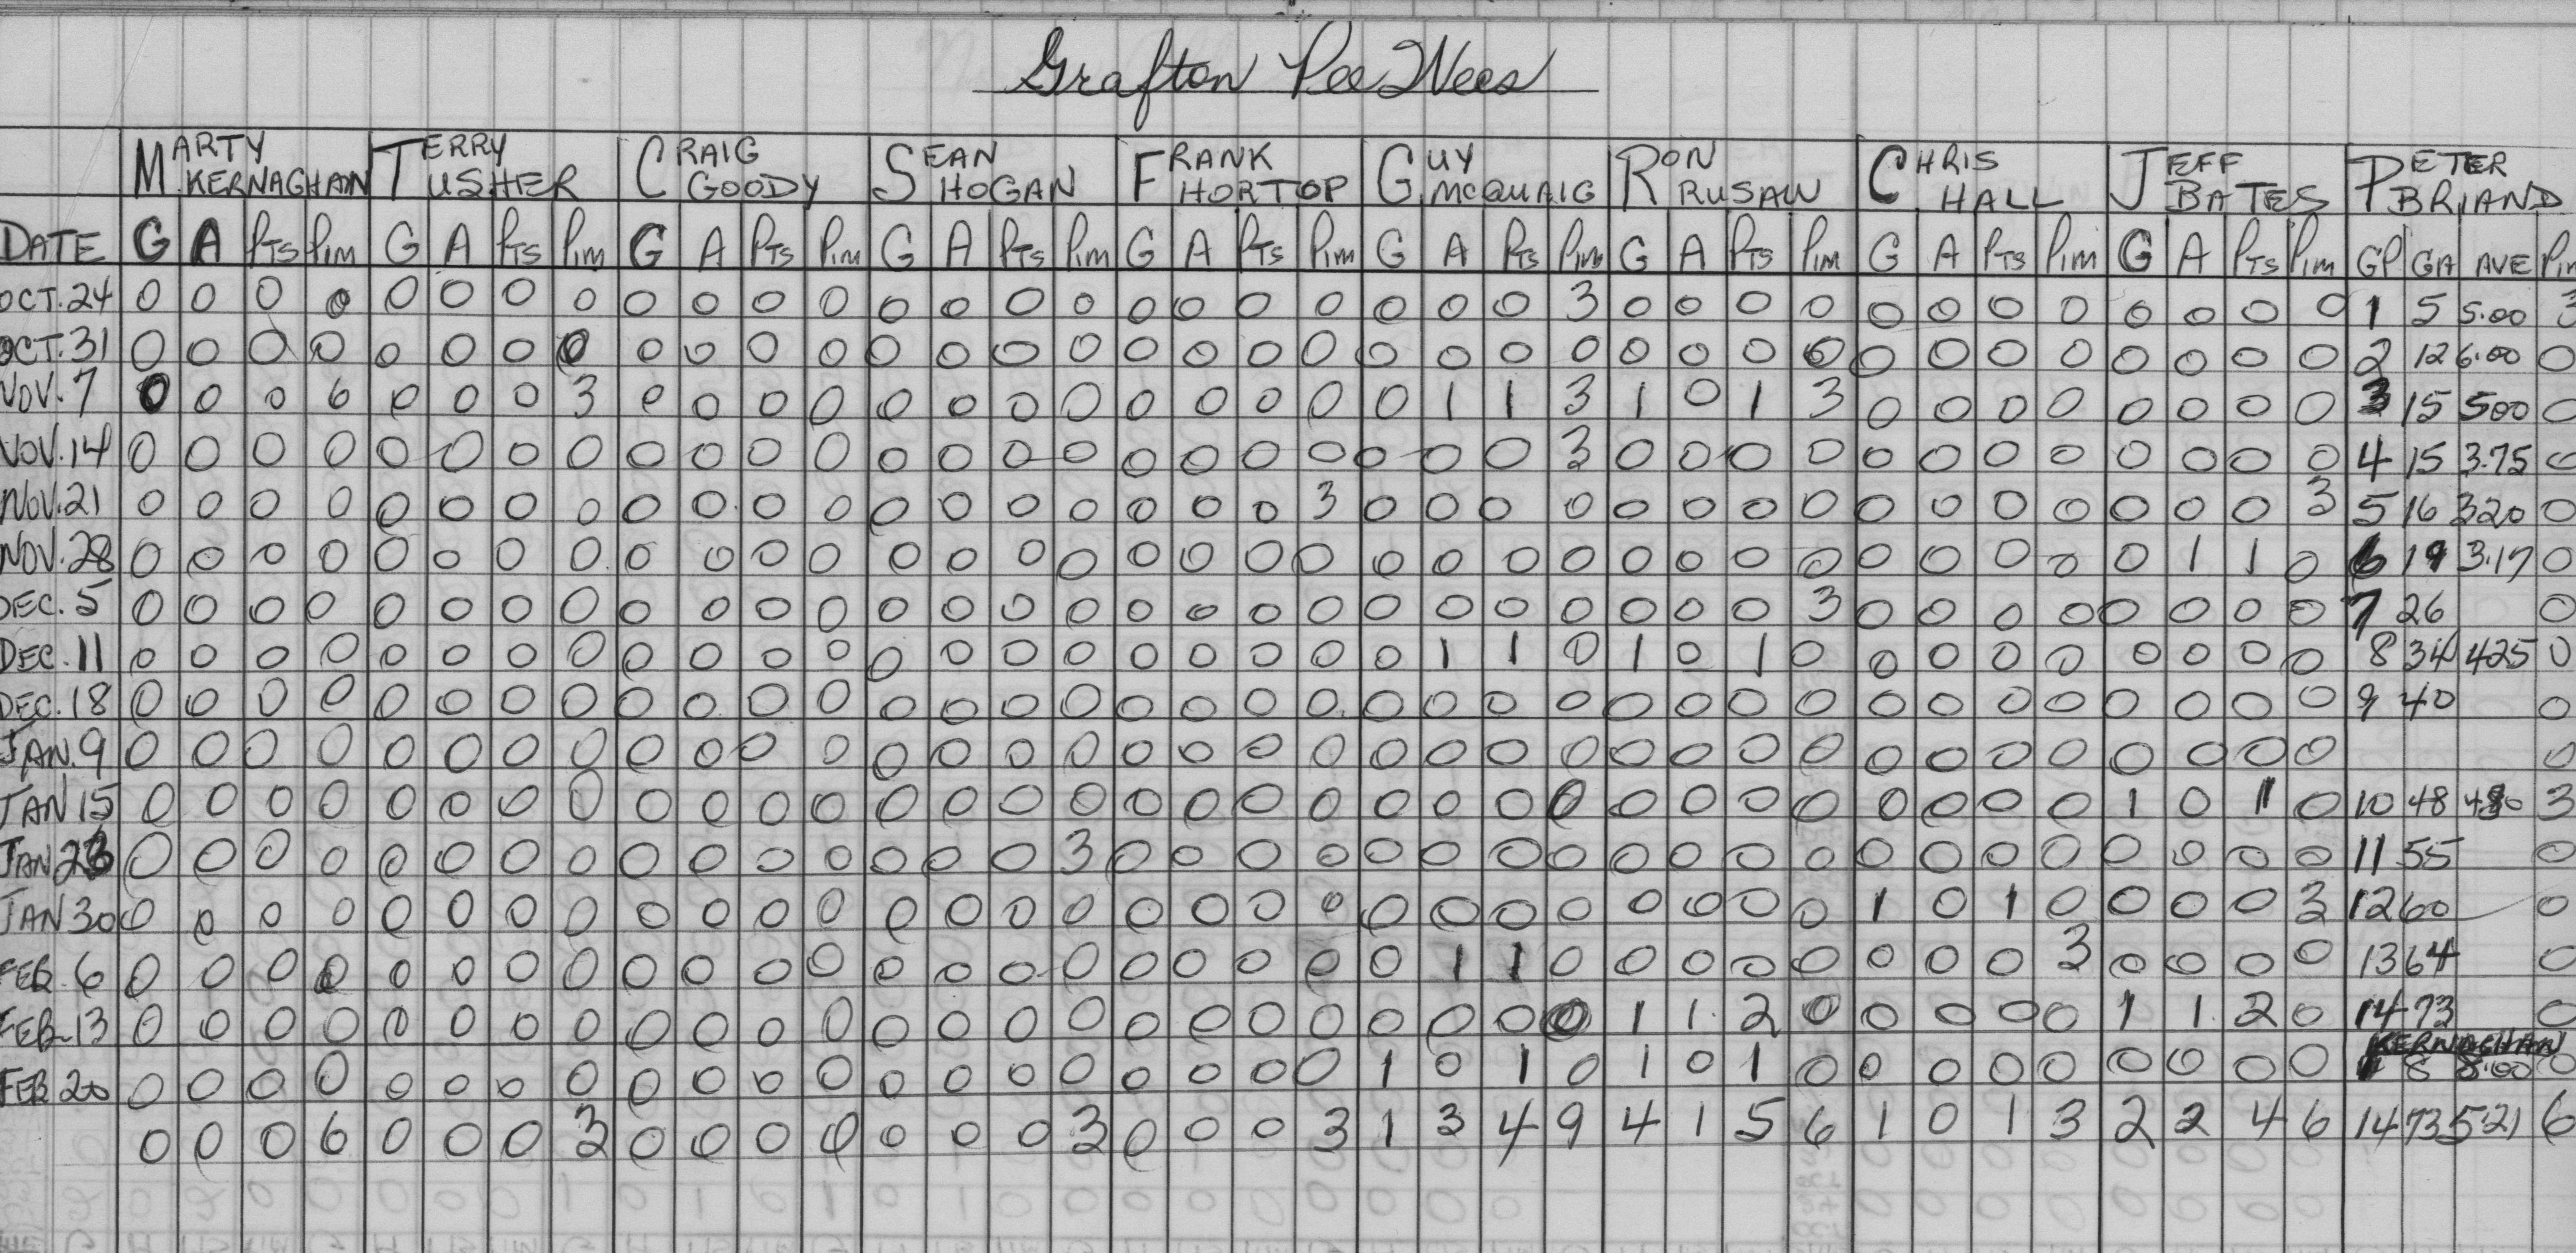 Grafton Pee Wees
MARTY KERNAGHAN TERRY TUSHER CRAIG GOODY SEAN HOGAN FRANK HORTOP GUY MCQUAIG RON RUSAW CHRIS HALL JEFF BATES PETER BRIAND
DATE G A PTS PIM G A PTS PIM G A PTS PIM G A PTS PIM G A PTS PIM G A PTS PIM G A PTS PIM G A PTS PIM G A PTS PIM GP GA AVE PIM
OCT. 24 0 0 0 0 0 0 0 0 0 0 0 0 0 0 0 0 0 0 0 0 0 0 0 3 0 0 0 0 0 0 0 0 0 0 0 0 1 5 5.00 3
OCT. 31 0 0 0 0 0 0 0 0 0 0 0 0 0 0 0 0 0 0 0 0 0 0 0 0 0 0 0 0 0 0 0 0 0 0 0 0 2 12 6.00 0
NOV. 7 0 0 0 6 0 0 0 3 0 0 0 0 0 0 0 0 0 0 0 0 0 1 1 3 1 0 1 3 0 0 0 0 0 0 0 0 3 15 500 0
NOV. 14 0 0 0 0 0 0 0 0 0 0 0 0 0 0 0 0 0 0 0 0 0 0 0 3 0 0 0 0 0 0 0 0 0 0 0 0 4 15 3.75 0
NOV. 21 0 0 0 0 0 0 0 0 0 0 0 0 0 0 0 0 0 0 0 3 0 0 0 0 0 0 0 0 0 0 0 0 0 0 0 3 5 16 320 0
NOV. 28 0 0 0 0 0 0 0 0 0 0 0 0 0 0 0 0 0 0 0 0 0 0 0 0 0 0 0 0 0 0 0 0 0 1 1 0 6 19 3.17 0
DEC. 5 0 0 0 0 0 0 0 0 0 0 0 0 0 0 0 0 0 0 0 0 0 0 0 0 0 0 0 3 0 0 0 0 0 0 0 0 7 26 0
DEC. 11 0 0 0 0 0 0 0 0 0 0 0 0 0 0 0 0 0 0 0 0 0 1 1 0 1 0 1 0 0 0 0 0 0 0 0 0 8 34 425 0
DEC. 18 0 0 0 0 0 0 0 0 0 0 0 0 0 0 0 0 0 0 0 0 0 0 0 0 0 0 0 0 0 0 0 0 0 0 0 0 9 40 0
JAN. 9 0 0 0 0 0 0 0 0 0 0 0 0 0 0 0 0 0 0 0 0 0 0 0 0 0 0 0 0 0 0 0 0 0 0 0 0 0
JAN 15 0 0 0 0 0 0 0 0 0 0 0 0 0 0 0 0 0 0 0 0 0 0 0 0 0 0 0 0 0 0 0 0 1 0 1 0 10 48 480 3
JAN 23 0 0 0 0 0 0 0 0 0 0 0 0 0 0 0 3 0 0 0 0 0 0 0 0 0 0 0 0 0 0 0 0 0 0 0 0 11 55 0
JAN 30 0 0 0 0 0 0 0 0 0 0 0 0 0 0 0 0 0 0 0 0 0 0 0 0 0 0 0 0 1 0 1 0 0 0 0 3 12 60 0
FEB. 6 0 0 0 0 0 0 0 0 0 0 0 0 0 0 0 0 0 0 0 0 0 1 1 0 0 0 0 0 0 0 0 3 0 0 0 0 13 64 0
FEB. 13 0 0 0 0 0 0 0 0 0 0 0 0 0 0 0 0 0 0 0 0 0 0 0 0 1 1 2 0 0 0 0 0 1 1 2 0 14 73 0
KERNAGHAN
FEB 20 0 0 0 0 0 0 0 0 0 0 0 0 0 0 0 0 0 0 0 0 1 0 1 0 1 0 1 0 0 0 0 0 0 0 0 0 1 8 8.00 0
0 0 0 6 0 0 0 3 0 0 0 0 0 0 0 3 0 0 0 3 1 3 4 9 4 1 5 6 1 0 1 3 2 2 4 6 14 73 5.21 6